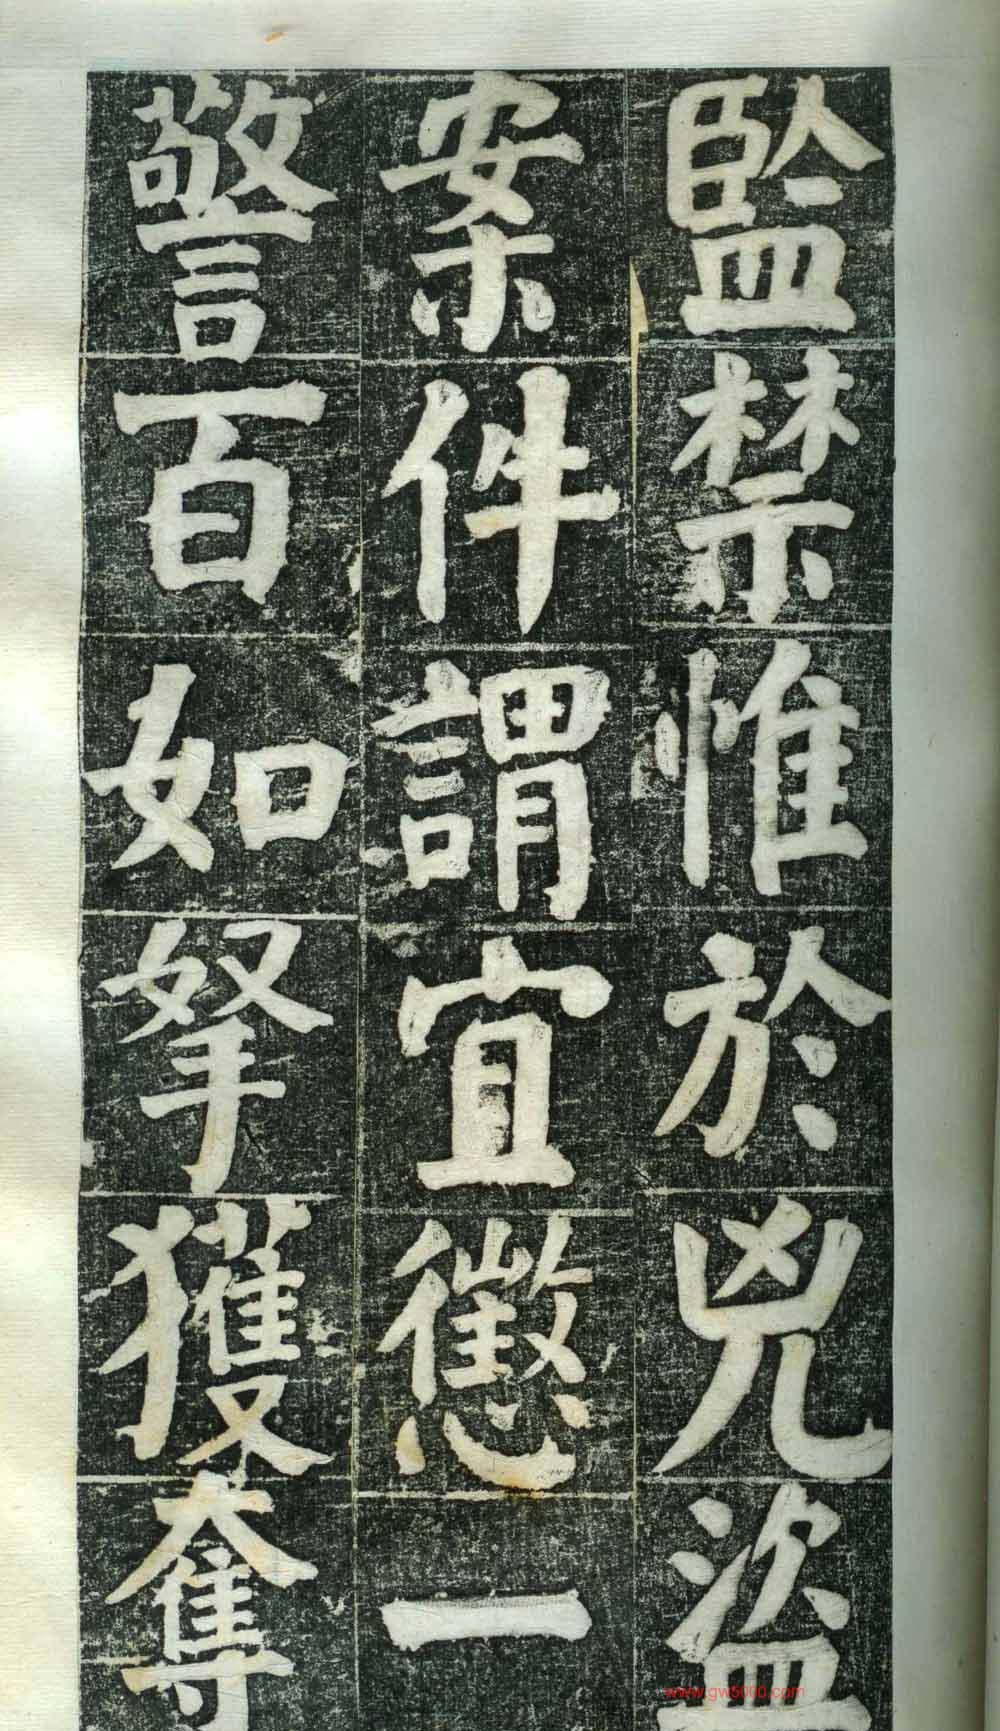 監禁惟於兇盜
案件謂宜懲一
警百如拏獲奪
www.gw5000.com